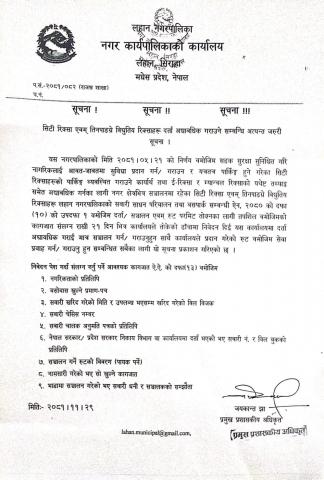 लहान नगरपालिका
नगर कार्यपालिकाको कार्यालय
लहान, सिराहा
मधेस प्रदेश, नेपाल
प.सं.-२०८१/०८२ (राजश्व शाखा)
च.नं.
सूचना ! सूचना !! सूचना !!!
सिटी रिक्सा एबम् तिनपाङग्रे बिधुतिय रिक्साहरू दर्ता अध्यावधिक गराउने सम्बन्धि अत्यन्त जरूरी
सूचना ।
यस नगरपालिकाको मिति २०८१।०५।२१ को निर्णय बमोजिम सडक सुरक्षित गरि
नागरिकलाई आवत-जावतमा सुविधा प्रदान गर्न/ गराउन र यत्रतत्र पार्किङ्ग हुने गरेका सिटी
रिक्साहरूको पार्किङ्ग व्यवस्थित गराउने कार्यार्थ तथा ई-रिक्सा र म्यानुवल रिक्साको यथेष्ट तथ्याङ्क
समेत अध्यावधिक गर्नका लागी नगर सेवाभित्र सञ्चालनमा रहेका सिटी रिक्सा एबम् तिनपाङग्रे बिधुतिय
रिक्साहरू लहान नगरपालिकाको सवारी साधन परिचालन तथा बसपार्क सम्बन्धी ऐन, २०८० को दफा
(१०) को उपदफा १ बमोजिम दर्ता/ सञ्चालन एबम् रुट परमिट तोक्नका लागी तपशिल बमोजिमको
कागजात संलग्न राखी २१ दिन भित्र कार्यालयले तोकेको ढाँचामा निवेदन दिई यस कार्यालयमा दर्ता
अध्यावधिक गराई मात्र सञ्चालन गर्न/ गराउनुहुन साथै कार्यालयले प्रदान गरेको रुट बमोजिम सेवा
प्रवाह गर्न/ गराउनु हुन सम्बन्धित सबैका लागी यो सूचना प्रकाशन गरिएको छ ।
निवेदन पेश गर्दा संलग्न गर्नु पर्ने आवश्यक कागजात ऐ.ऐ. को दफा(१३) बमोजिम
१. नागरिकताको प्रतिलिपि
२. बसोवास खुल्ने प्रमाण-पत्र
३. सवारी खरिद गरेको मिति र उपलब्ध भएसम्म खरिद गरेको बिल बिजक
४. सवारी चेसिस नम्बर
५. सवारी चालक अनुमति पत्रको प्रतिलिपि
६. नेपाल सरकार/ प्रदेश सरकार निकाय विभाग वा कार्यालयमा दर्ता भएको भए सवारी नं. र बिल बुकको
प्रतिलिपि
७. सञ्चालन गर्ने रुटको बिबरण (पायक पर्ने)
८. नामसारी गरेको भए सो खुल्ने कागजात
९. भाडामा सञ्चालन गरेको भए सवारी धनी र सञ्चालकको सम्झौता
मितिः- २०८१।११।२९
जयकान्त झा
प्रमुख प्रशासकीय अधिकृत
प्रमुख प्रशासकीय अधिकृत
lahan.municipal@gmail.com,